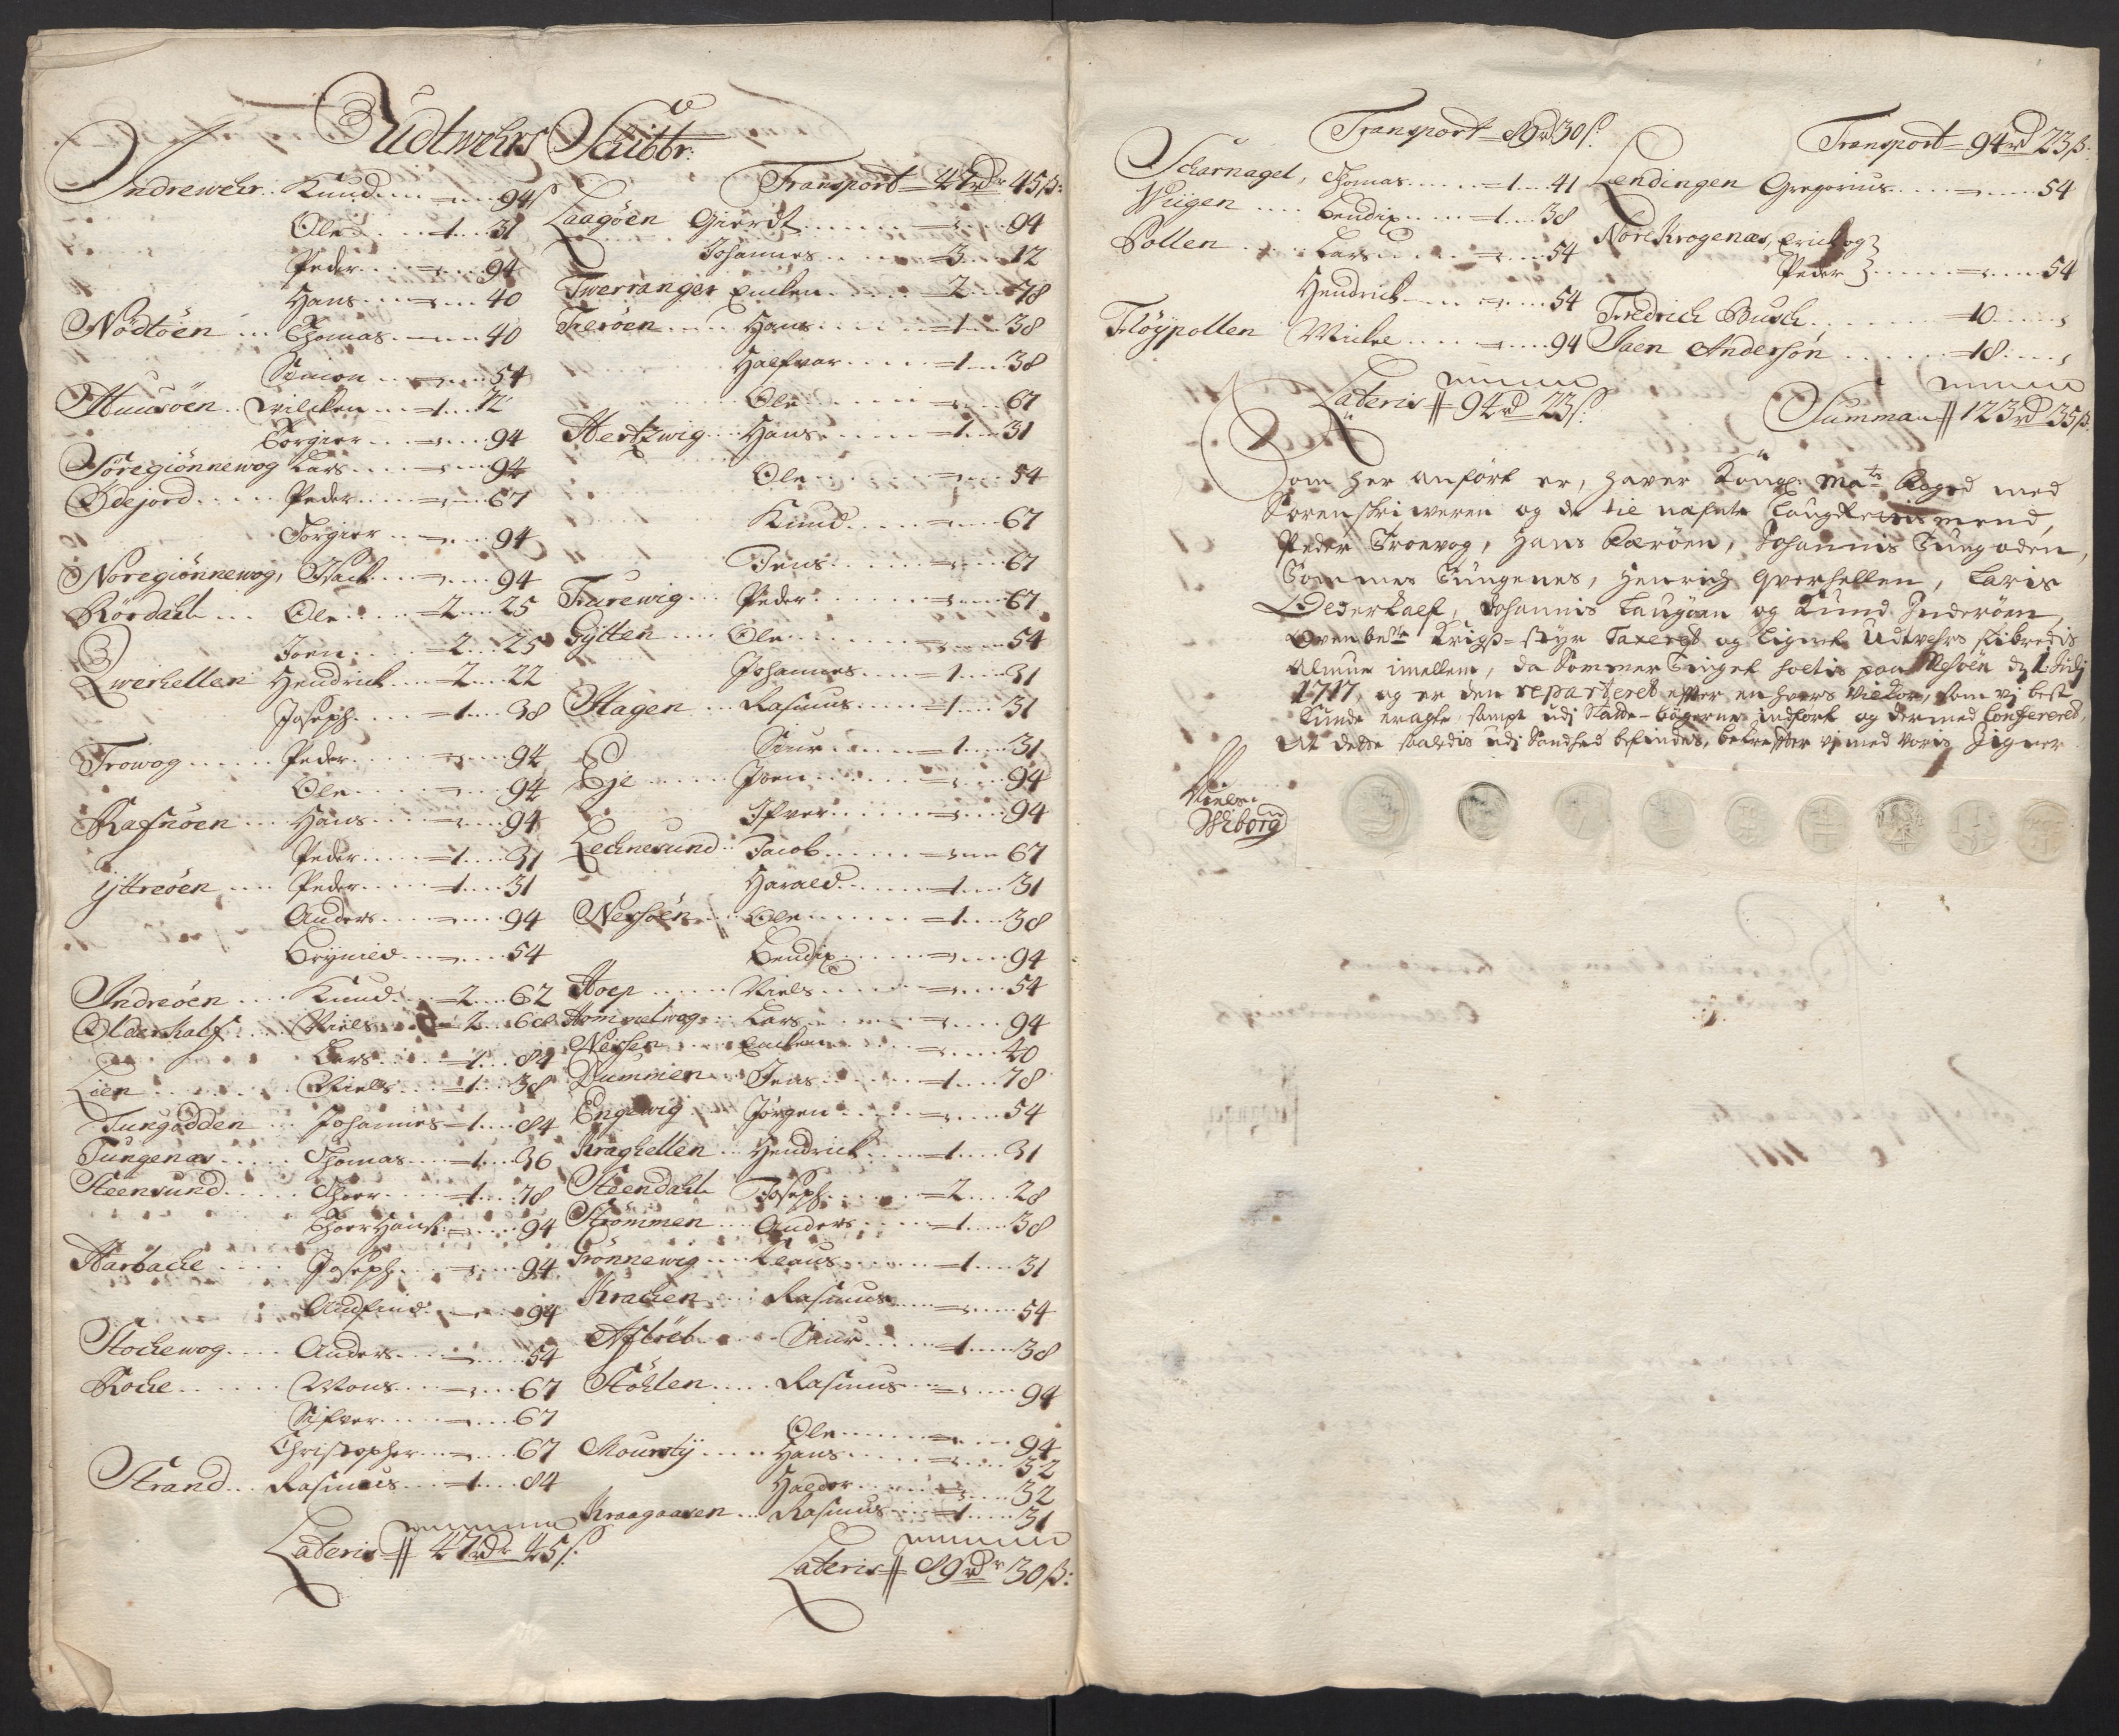 Udtwehrs Schibbr:
Indrewehr Knud 94 s
Ole 1 31
Peder 94
Hans 40
Nödtöen Thomas 40
Simon 54
Huusöen Wilcken 1 72
Torgier 94
Söregiönnewog Lars 94
Odejord Peder 67
Torgier 94
Noregiönnewog, Isack 94
Rördahl Ole 2 25
Joen 2 25
Qwerhellen Hendrick 2 22
Joseph 1 38
Trowog Peder 94
Ole 94
Rafnöen Hans 94
Peder 1 31
Yttreöen Peder 1 31
Anders 94
Brynild 54
Indreöen Knud 2 62
Olderkalf Niels 2 68
Lars 1 84
Lien Niels 1 38
Tungodden Johannes 1 84
Tungenæs Thomas 1 36
Steensund Thoer 1 78
Thoer Hans 94
Harbache Joseph 94
Audfind 94
Stochewog Anders 54
Koche Mons 67
Sifver 67
Christopher 67
Strand Rasmus 1 84
Lateris 47 rdr 45 s:
Transport 47 rdr 45 s:
Laagöen Giordt 94
Johannes 3 12
Twerranger Encken 2 78
Fieröen Hans 1 38
Halfvor 1 38
Ole 67
Hertzwig Hans 1 31
Ole 54
Knud 67
Jens 67
Furewig Peder 67
Gytten Ole 54
Johannes 1 31
Hagen Rasmus 1 31
Siur 1 31
Eje Joen 94
Ifver 94
Lechnesund Jacob 67
Harald 1 31
Nessöen Ole 1 38
Bendix 94
Hoep Niels 54
Hommelwog Lars 94
Nessen Encken 40
Dummien Jens 1 78
Engewig Jörgen 54
Kraghellen Hendrick 1 31
Steendahl Joseph 2 28
Strömmen Anders 1 38
Grönnewig Claus 1 31
Krachen Rasmus 54
Siur 1 38
Stöhlen Rasmus 94
Ole 94
Moursty Hans 32
Haldor 32
Kraagaasen Rasmus 1 31
Lateris 89 rdr 30 s:
Transport 89 rd 30 s:
Scharnagel, Thomas 1 41
Wiigen Bendix 1 38
Pollen Lars 54
Hendrick 54
Flöypollen Mickel 94
Lateris 94 rd 23 s:
Transport 94 rd 23 s:
Lendingen Gregorius 54
Nore Krogenæs, Erich og
Peder 54
Fredrich Busch 10
Jaen Andersön 18
Summa 123 rd 35 s.
Som her anfört er, haver Kongl: Mats Foged med
Sorenskriweren og de til næfnte Laugrettismend,
Peder Troevog, Hans Færöen, Johannis Tungoden,
Tommes Tungenes, Henrich Qverhellen, Laris
Olderkalf, Johannis Laugöen og Knud Inderöen
Ovenbete Krigs-styr Taxeret og lignet Udtvehrs skibredis
Almue imellem, da Sommer Tinget holtis paa Nesöen d 1 Julj
1717, og er den reparteret efter enhvers vilkor, som vj best
kunde eragte, sampt udj Skatte-bögerne indfört og dermed Confereret,
At dette saaledis udj Sandhed befindes, bekrefter vj med voris Zigner
Niels
Wiborg